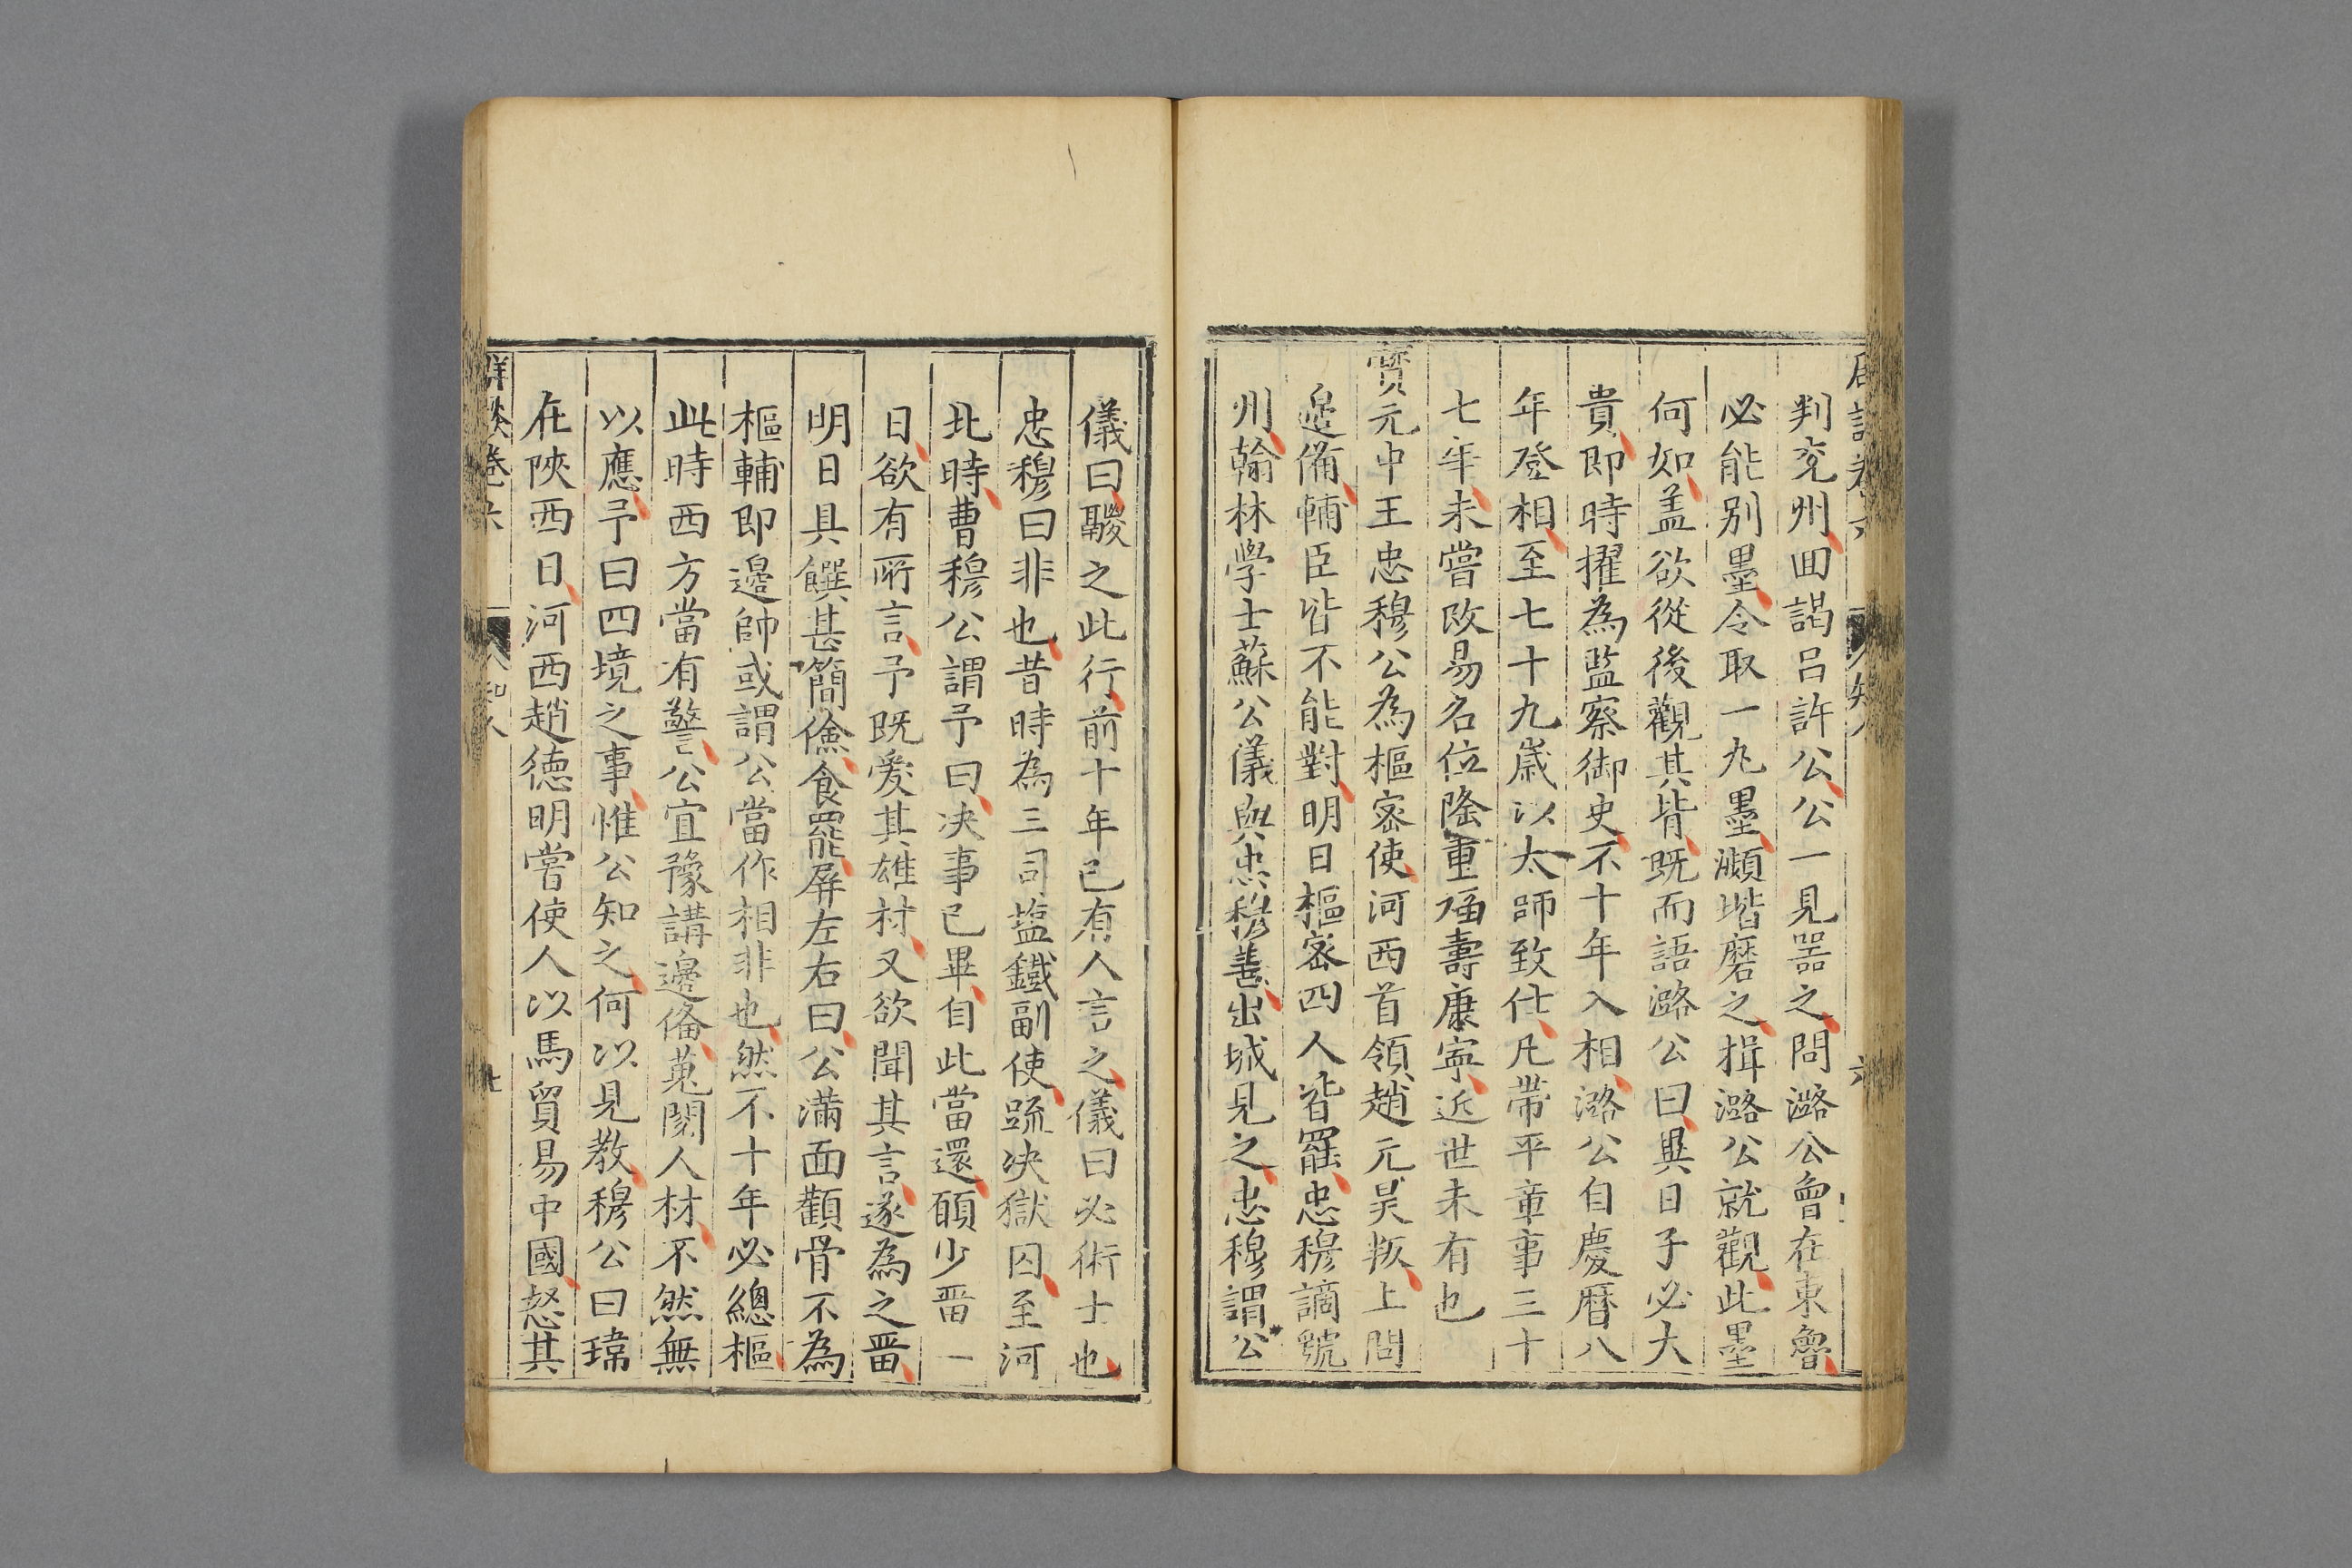 判兖州回謁呂許公公一見噐之問潞公曾在東魯
必能别墨令取一丸墨瀕堦磨之揖潞公就觀此墨
何如盖欲從後觀其背既而語潞公曰異日子必大
貴即時擢為監察御史不十年入相潞公自慶曆八
年登相至七十九歲以太師致仕凡帶平章事三十
七年未嘗改易名位隆重福壽康寧近世未有也
寳元中王忠穆公為樞宻使河西首領趙元昊叛上問
邉俻輔臣皆不能對明日樞宻四人皆罷忠穆謫虢
州翰林學士蘇公儀與忠穆善出城見之忠穆謂公
儀曰鬷之此行前十年已有人言之儀曰必術士也
忠穆曰非也昔時為三司塩鐵副使䟽决獄囚至河
北時曹穆公謂予曰决事已畢自此當還願少畱一
日欲有所言予既愛其雄材又欲聞其言遂為之畱
明日具饌甚簡儉食罷屏左右曰公滿面顴骨不為
樞輔即邉帥或謂公當作相非也然不十年必總樞
此時西方當有警公宜豫講邉俻蒐閱人材不然無
以應予曰四境之事惟公知之何以見教穆公曰瑋
在陝西日河西趙德明嘗使人以馬貿易中國怒其
知人